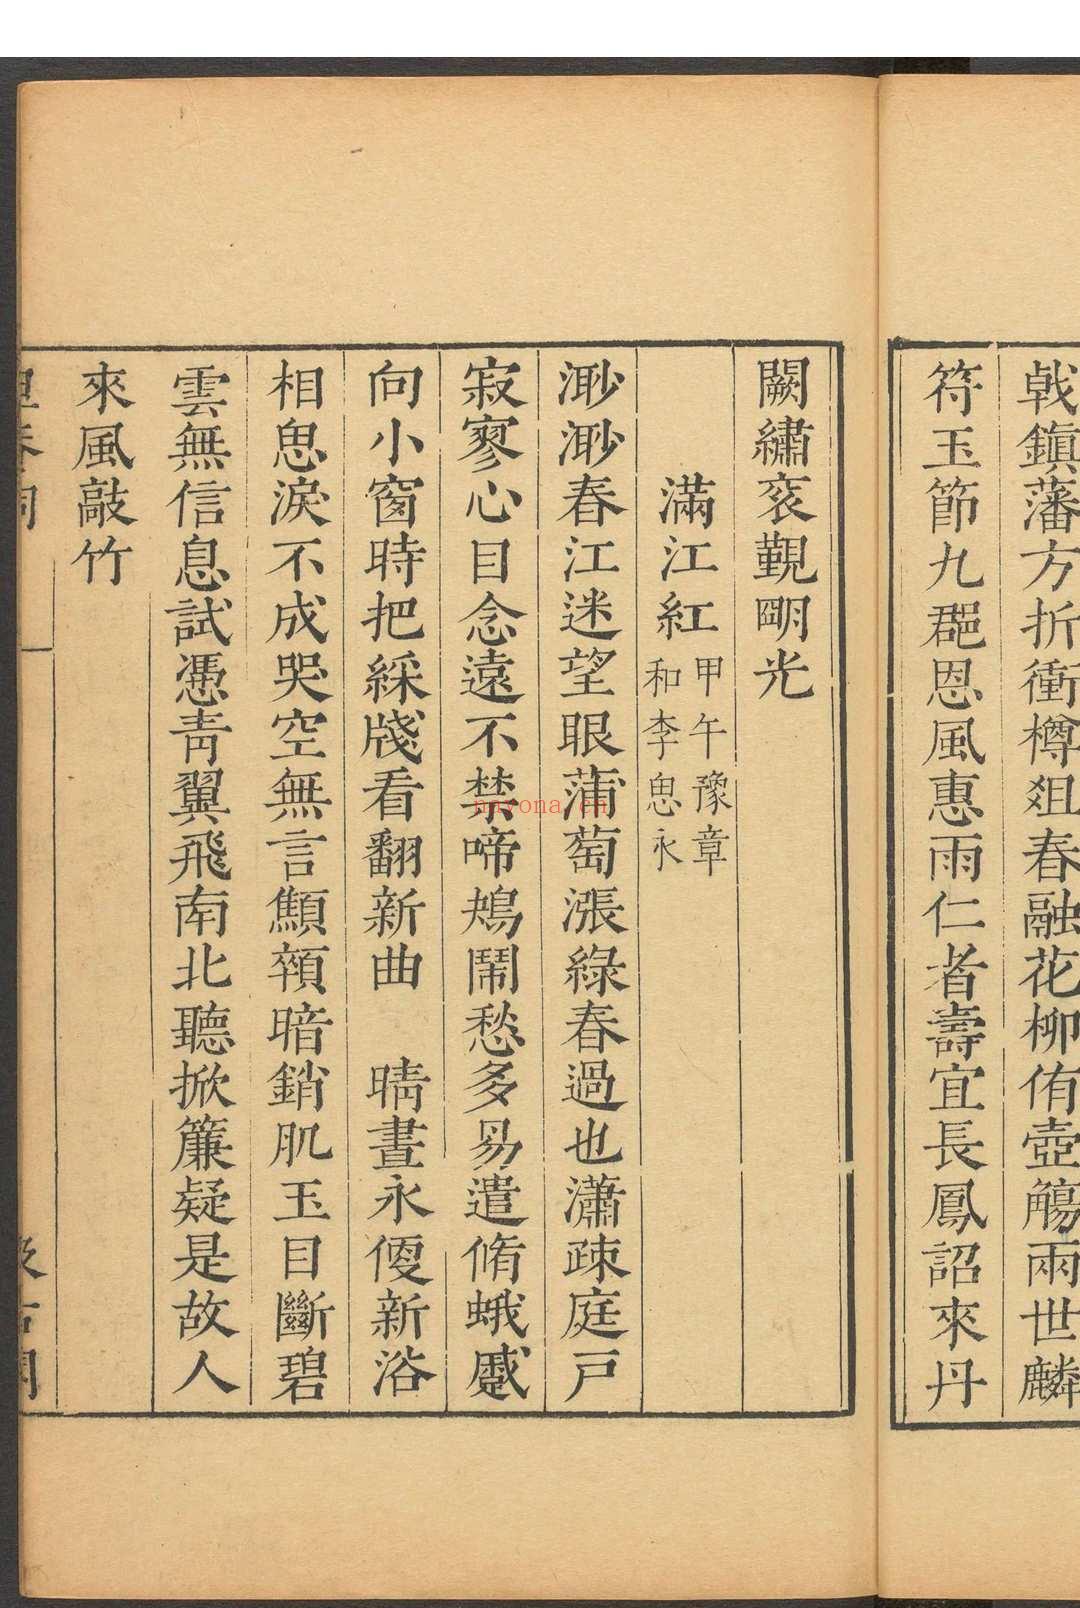 戟鎭藩方折衝樽爼春融花柳侑壺觴兩世麟
符玉節九郡恩風惠雨仁者壽宜長鳳詔來丹
闕繡衮覲朙光
滿江紅 甲午豫章
和李思永
渺渺春江迷望眼蒲萄漲綠春過也瀟疎庭戸
寂寥心目念遠不禁啼鴂鬧愁多易遣脩蛾蹙
向小窗時把綵牋看翻新曲　晴晝永偠新浴
相思淚不成哭空無言顦顇暗銷肌玉目斷碧
雲無信息試憑靑翼飛南北聽掀簾疑是故人
來風敲竹
詞 一
nayona.cn